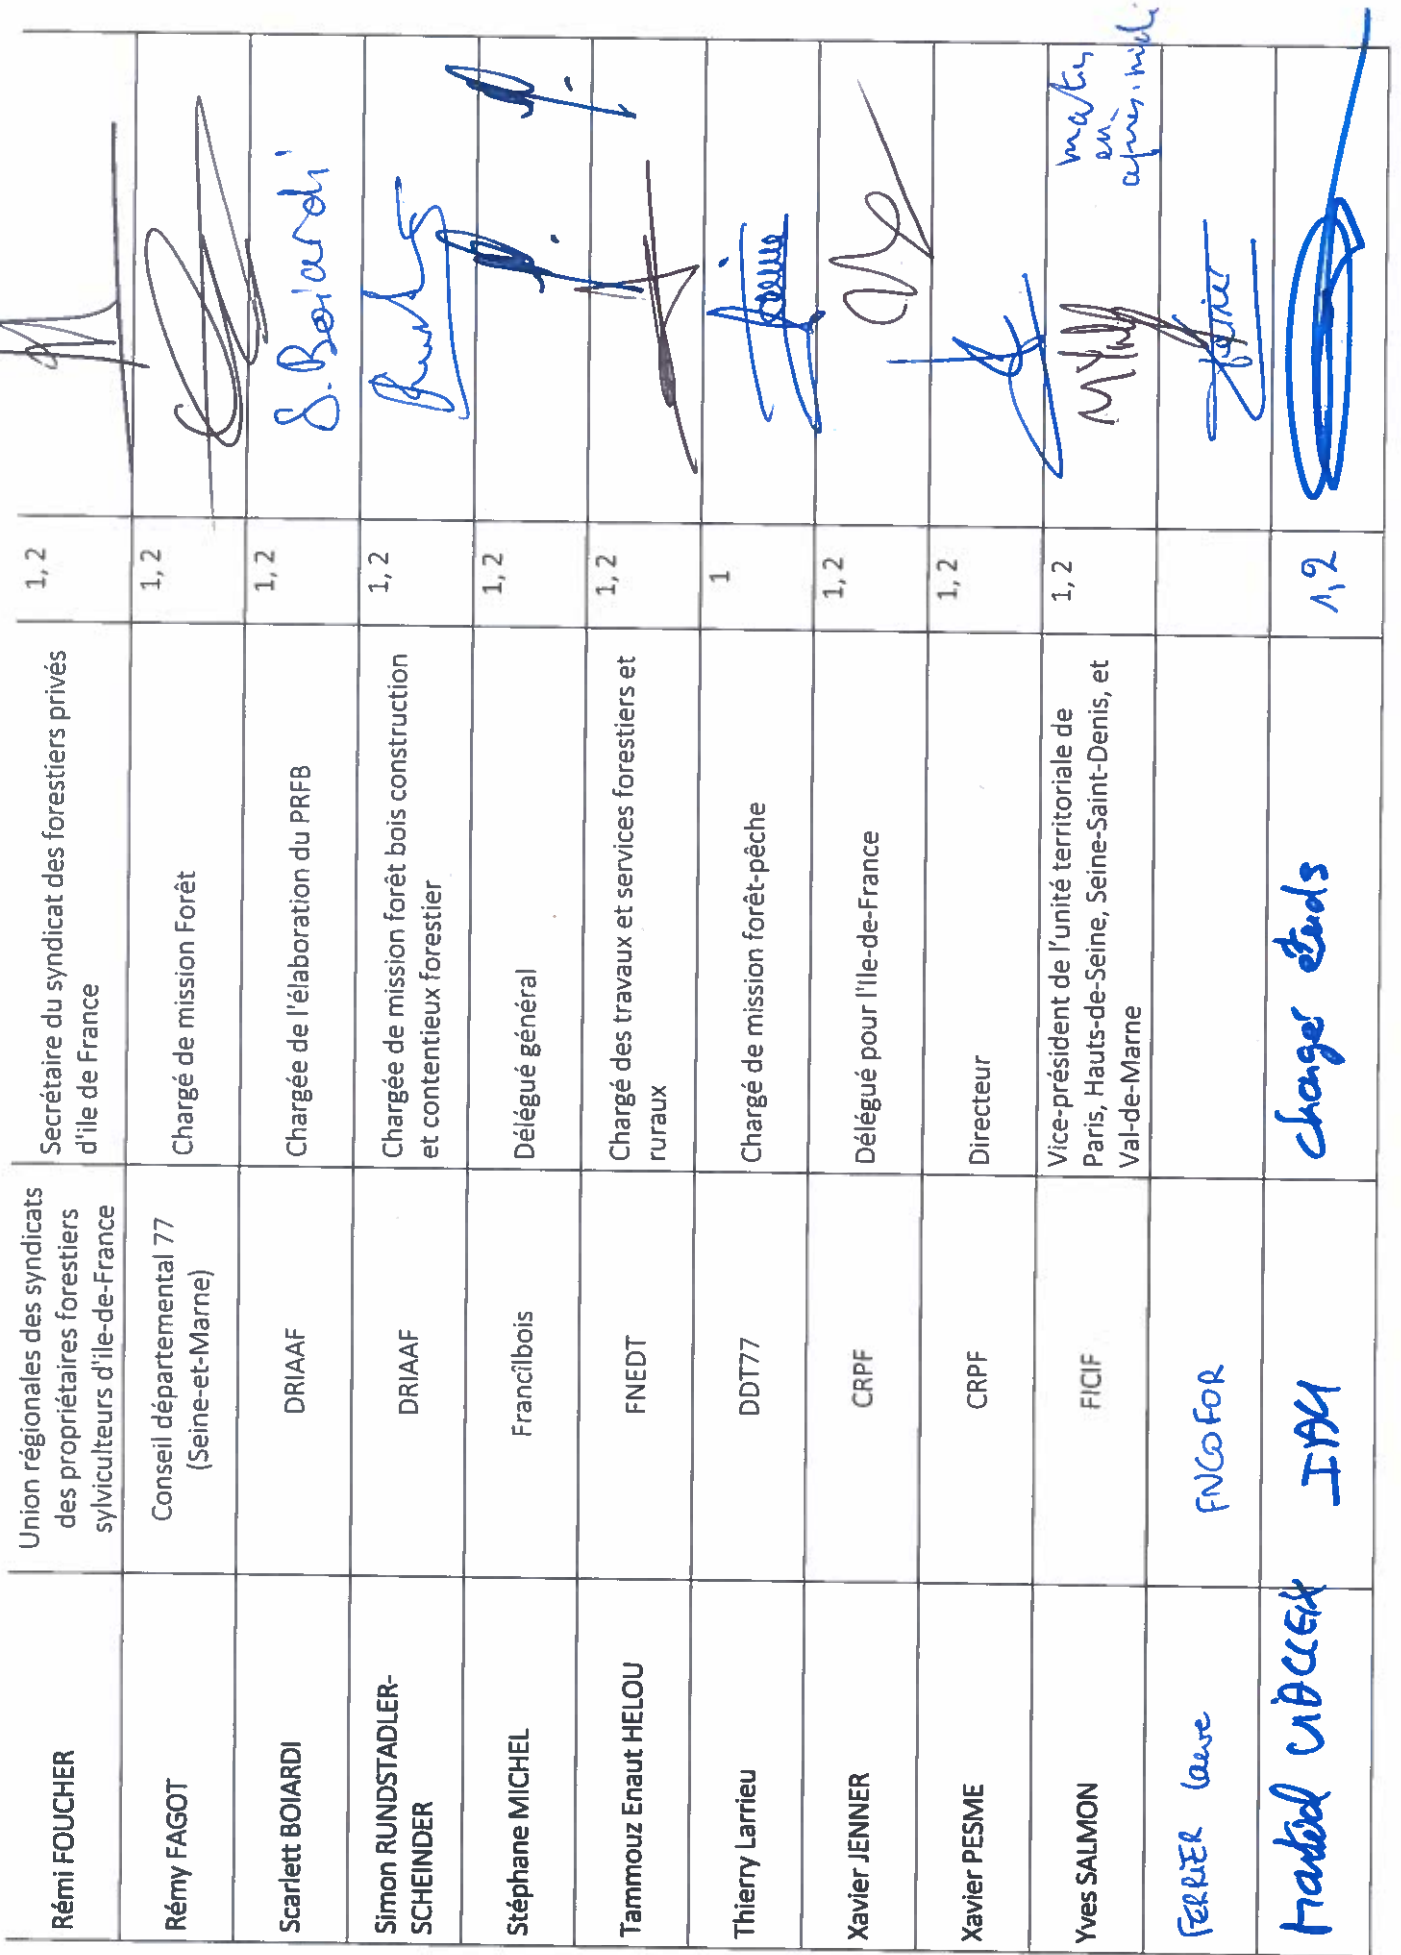 Rémi FOUCHER
Union régionales des syndicats
des propriétaires forestiers
sylviculteurs d'ile-de-France
Secrétaire du syndicat des forestiers privés
d'ile de France
1, 2
Rémy FAGOT
Conseil départemental 77
(Seine-et-Marne)
Chargé de mission Forêt
1, 2
Scarlett BOIARDI
DRIAAF
Chargée de l'élaboration du PRFB
1, 2
S. Boiardi
Simon RUNDSTADLER-
SCHEINDER
DRIAAF
Chargée de mission forêt bois construction
et contentieux forestier
1, 2
Stéphane MICHEL
Francilbois
Délégué général
1, 2
Tammouz Enaut HELOU
FNEDT
Chargé des travaux et services forestiers et
ruraux
1, 2
Thierry Larrieu
DDT77
Chargé de mission forêt-pêche
1
Xavier JENNER
CRPF
Délégué pour l'Ile-de-France
1, 2
Xavier PESME
CRPF
Directeur
1, 2
Yves SALMON
FICIF
Vice-président de l'unité territoriale de
Paris, Hauts-de-Seine, Seine-Saint-Denis, et
Val-de-Marne
1, 2
FERRIER Laure
FNCOFOR
Ferrier
1,2